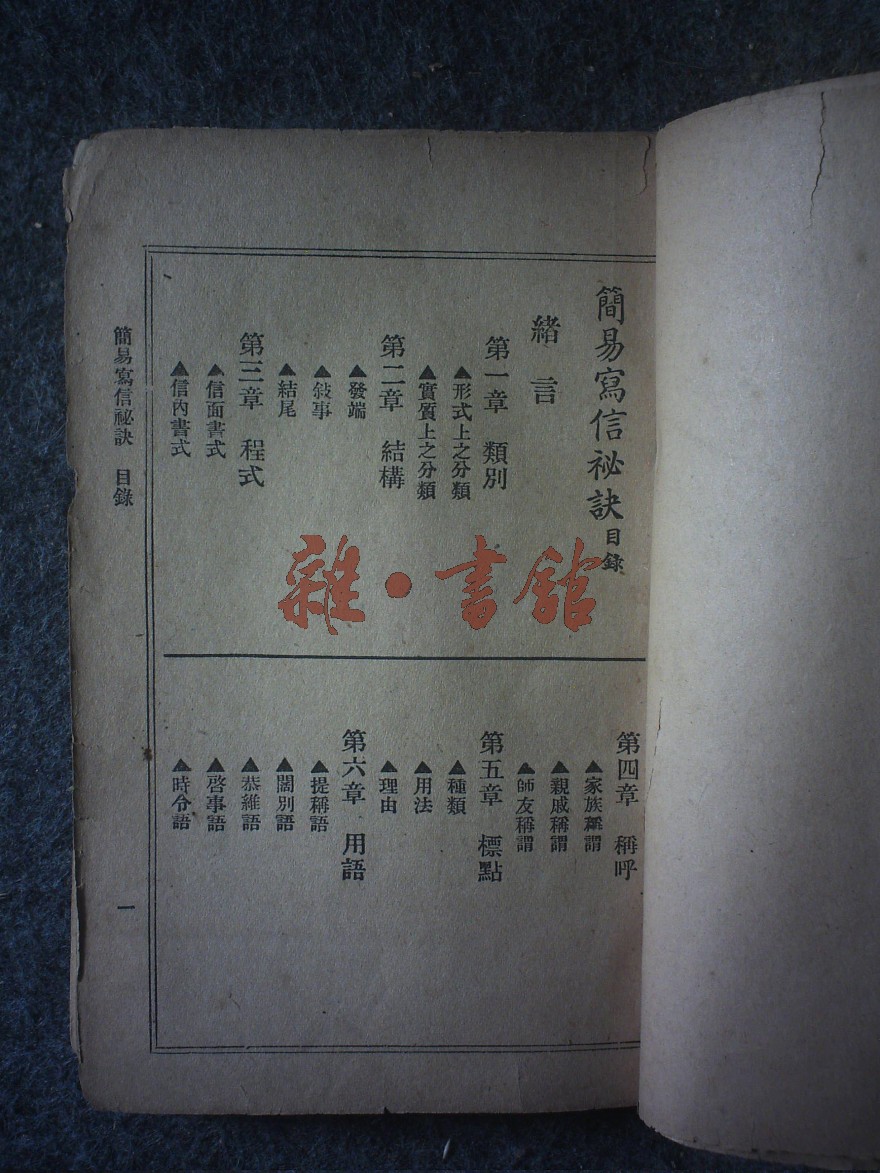 簡易寫信祕訣目錄
緒言
第一章 類別
▲形式上之分類
▲實質上之分類
第二章 結構
▲發端
▲敍事
▲結尾
第三章 程式
▲信面書式
▲信內書式
第四章 稱呼
▲家族稱謂
▲親戚稱謂
▲師友稱謂
第五章 標點
▲種類
▲用法
▲理由
第六章 用語
▲提稱語
▲闊別語
▲恭維語
▲啓事語
▲時令語
簡易寫信祕訣 目錄
一
雜·書館